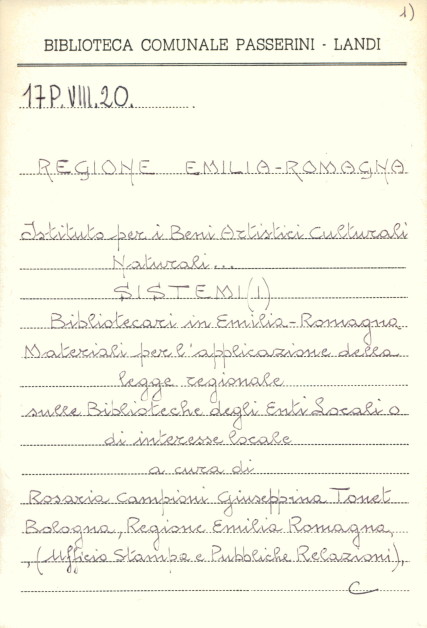 1)
BIBLIOTECA COMUNALE PASSERINI - LANDI
17P.VIII.20.
REGIONE EMILIA-ROMAGNA
Istituto per i Beni Artistici Culturali
Naturali...
SISTEMI(i)
Bibliotecari in Emilia-Romagna
Materiali per l'applicazione della
legge regionale
sulle Biblioteche degli Enti Locali o
di interesse locale
a cura di
Rosaria Campioni Giuseppina Tonet
Bologna, Regione Emilia Romagna,
, (Ufficio Stampa e Pubbliche Relazioni),
C